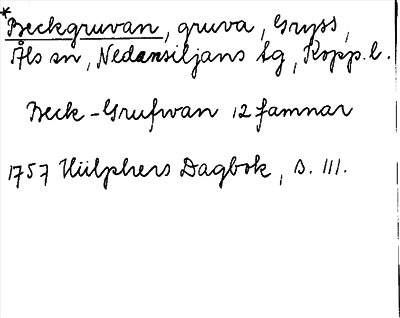 *Beckgruvan, gruva, Gryss,
Åls sn, Nedansiljans tg, Kopp.l.
Beck-Grufwan 12 famnar
1757 Hülphers Dagbok, s. 111.